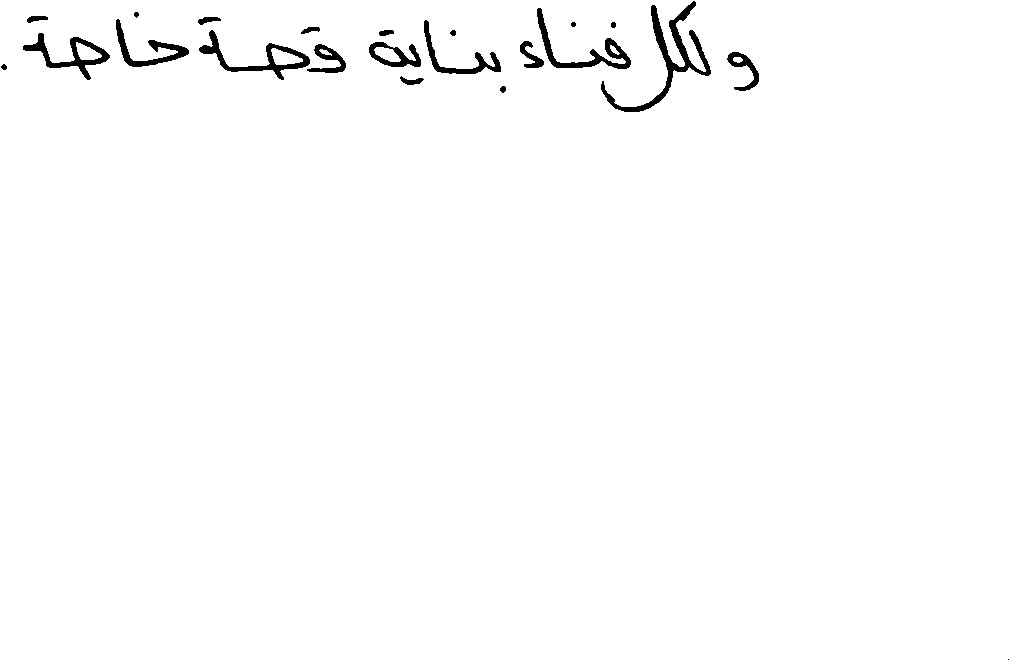 ولكل فناء بناية قصة خاصة.